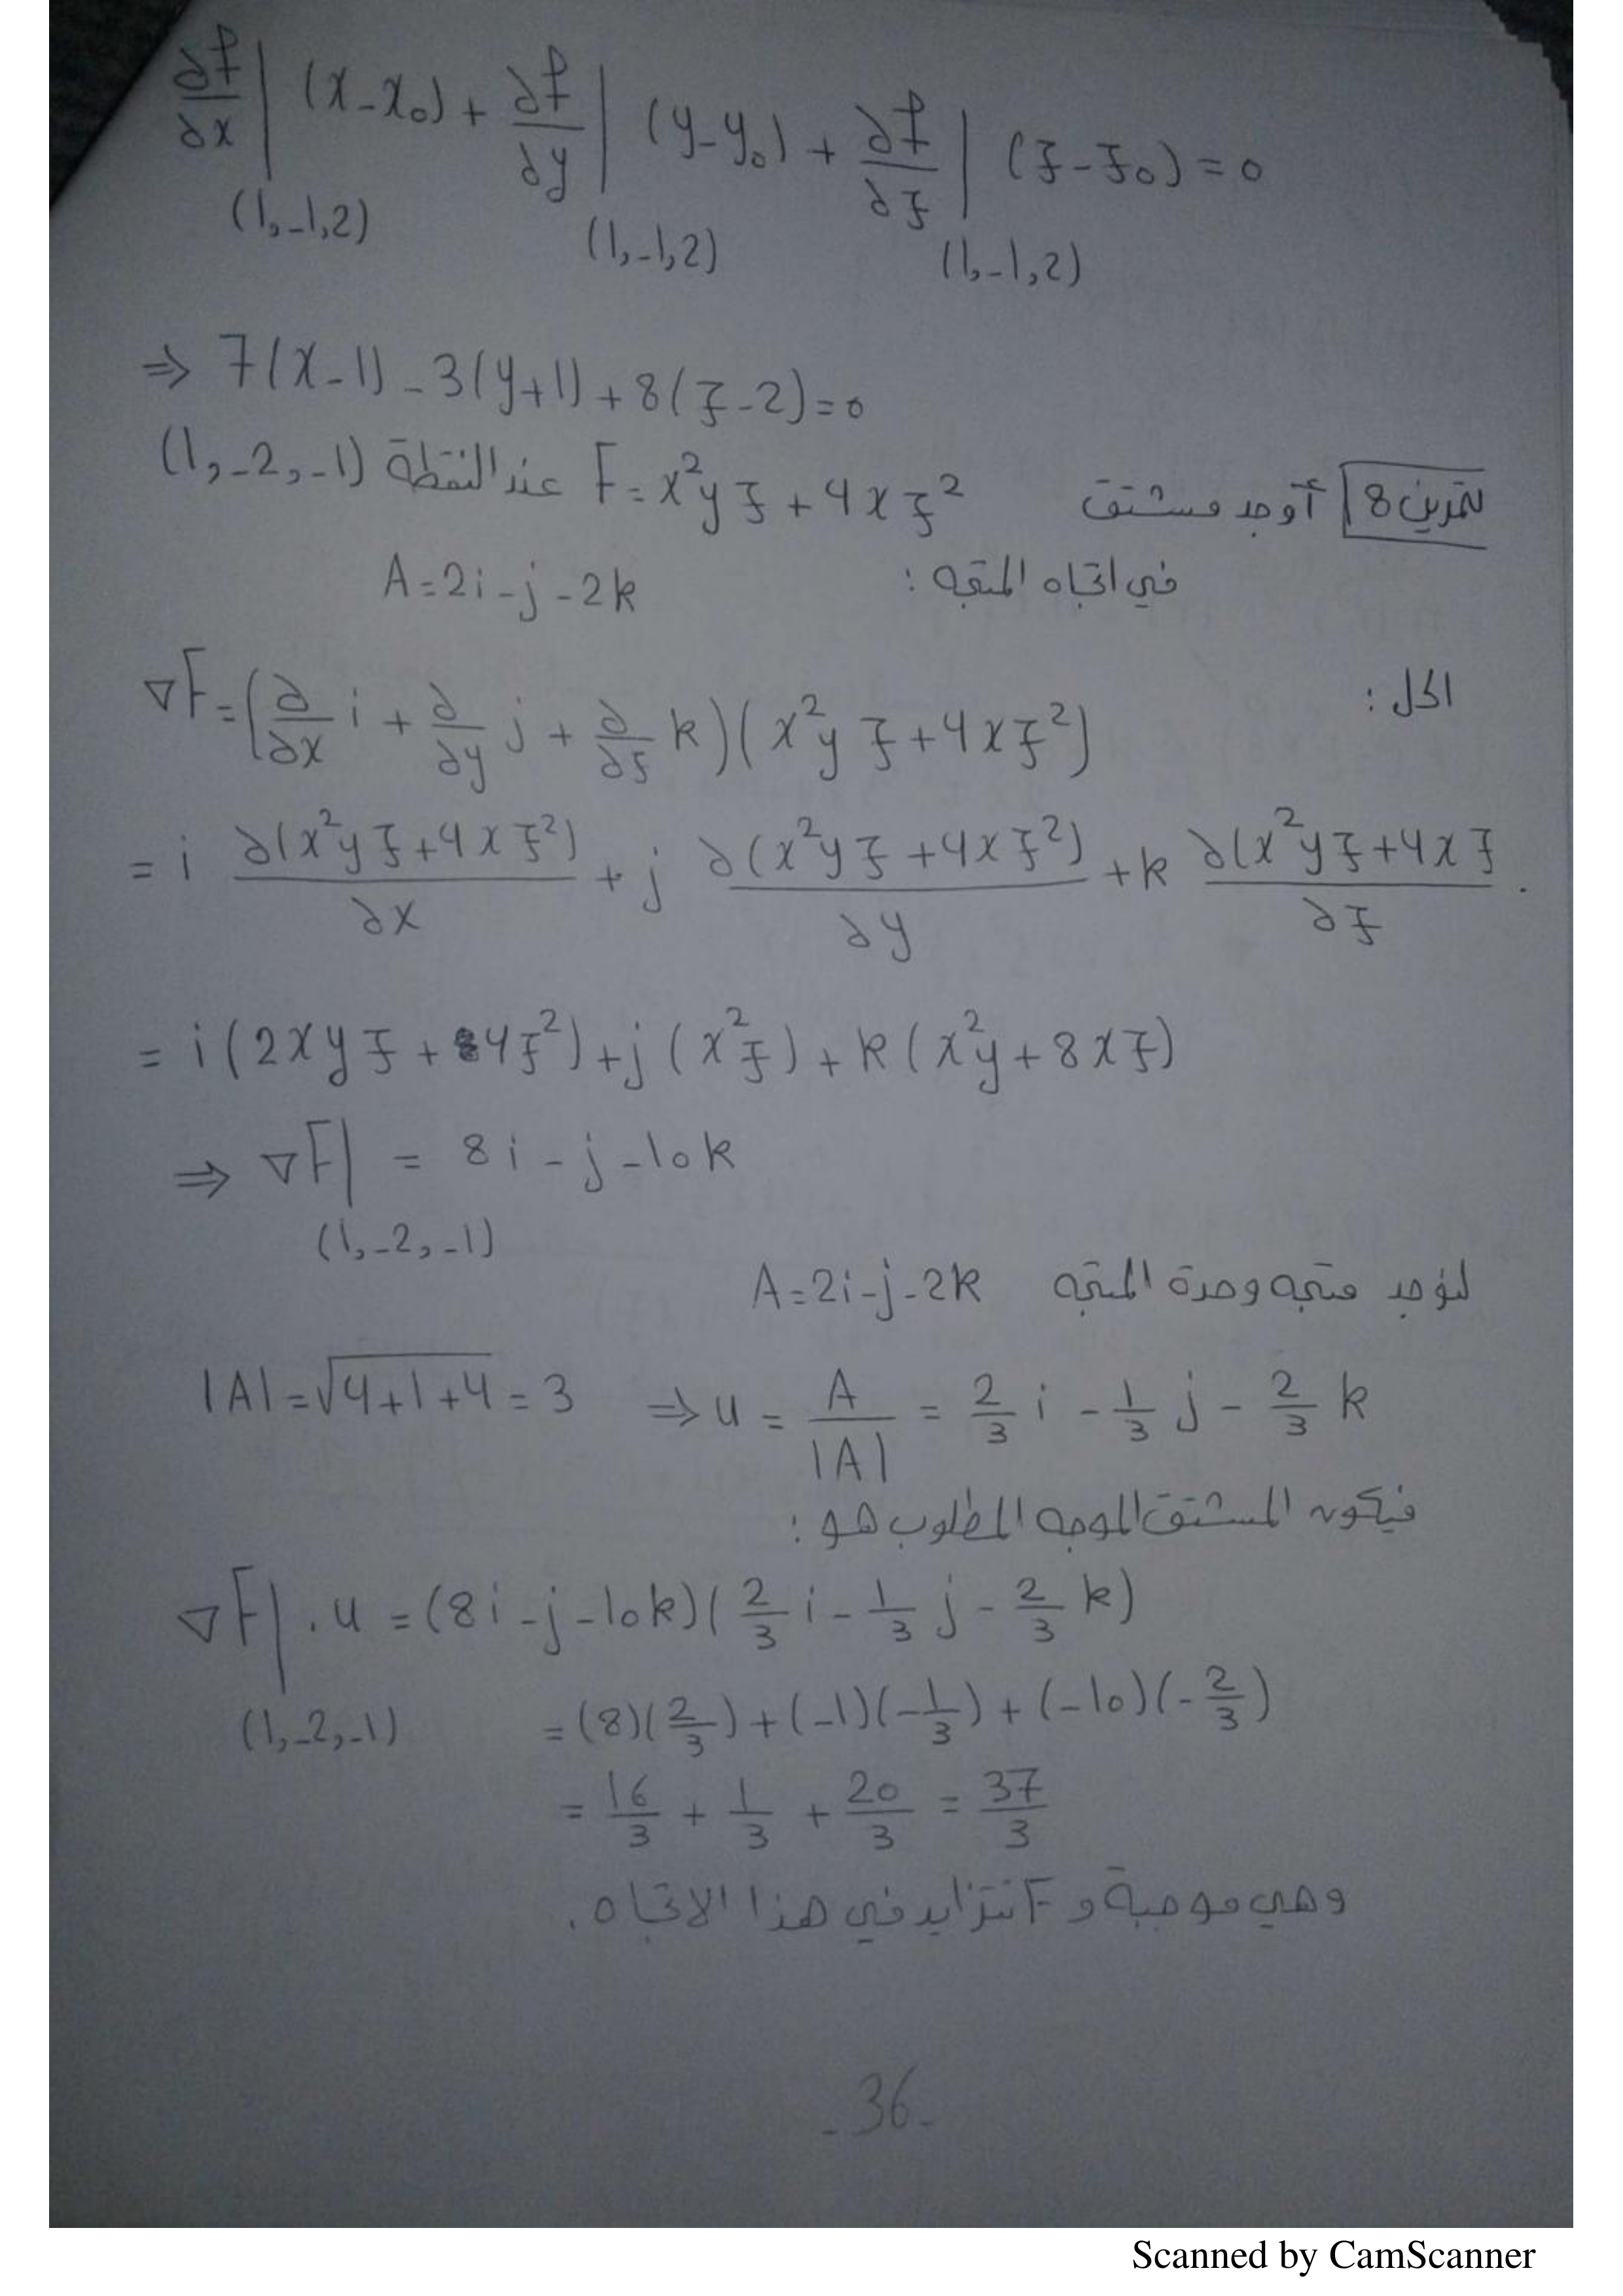 ∂f/∂x |(1,-1,2) (x-x₀) + ∂f/∂y |(1,-1,2) (y-y₀) + ∂f/∂z |(1,-1,2) (z-z₀) = 0
⇒ 7(x-1) - 3(y+1) + 8(z-2) = 0
تمرين 8 أوجد مشتق F = x²yz + 4xz² عند النقطة (1,-2,-1)
في اتجاه المتجه: A = 2i - j - 2k
الحل:
∇F = (∂/∂x i + ∂/∂y j + ∂/∂z k)(x²yz + 4xz²)
= i ∂(x²yz + 4xz²)/∂x + j ∂(x²yz + 4xz²)/∂y + k ∂(x²yz + 4xz/∂z
= i(2xyz + 4z²) + j(x²z) + k(x²y + 8xz)
⇒ ∇F|(1,-2,-1) = 8i - j - 10k
لنوجد متجه وحدة المتجه A = 2i - j - 2k
|A| = √4+1+4 = 3 ⇒ u = A/|A| = 2/3 i - 1/3 j - 2/3 k
فيكون المشتق الموجه المطلوب هو:
∇F|(1,-2,-1) . u = (8i - j - 10k)(2/3 i - 1/3 j - 2/3 k)
= (8)(2/3) + (-1)(-1/3) + (-10)(-2/3)
= 16/3 + 1/3 + 20/3 = 37/3
وهي موجبة و F تتزايد في هذا الاتجاه.
-36-
Scanned by CamScanner